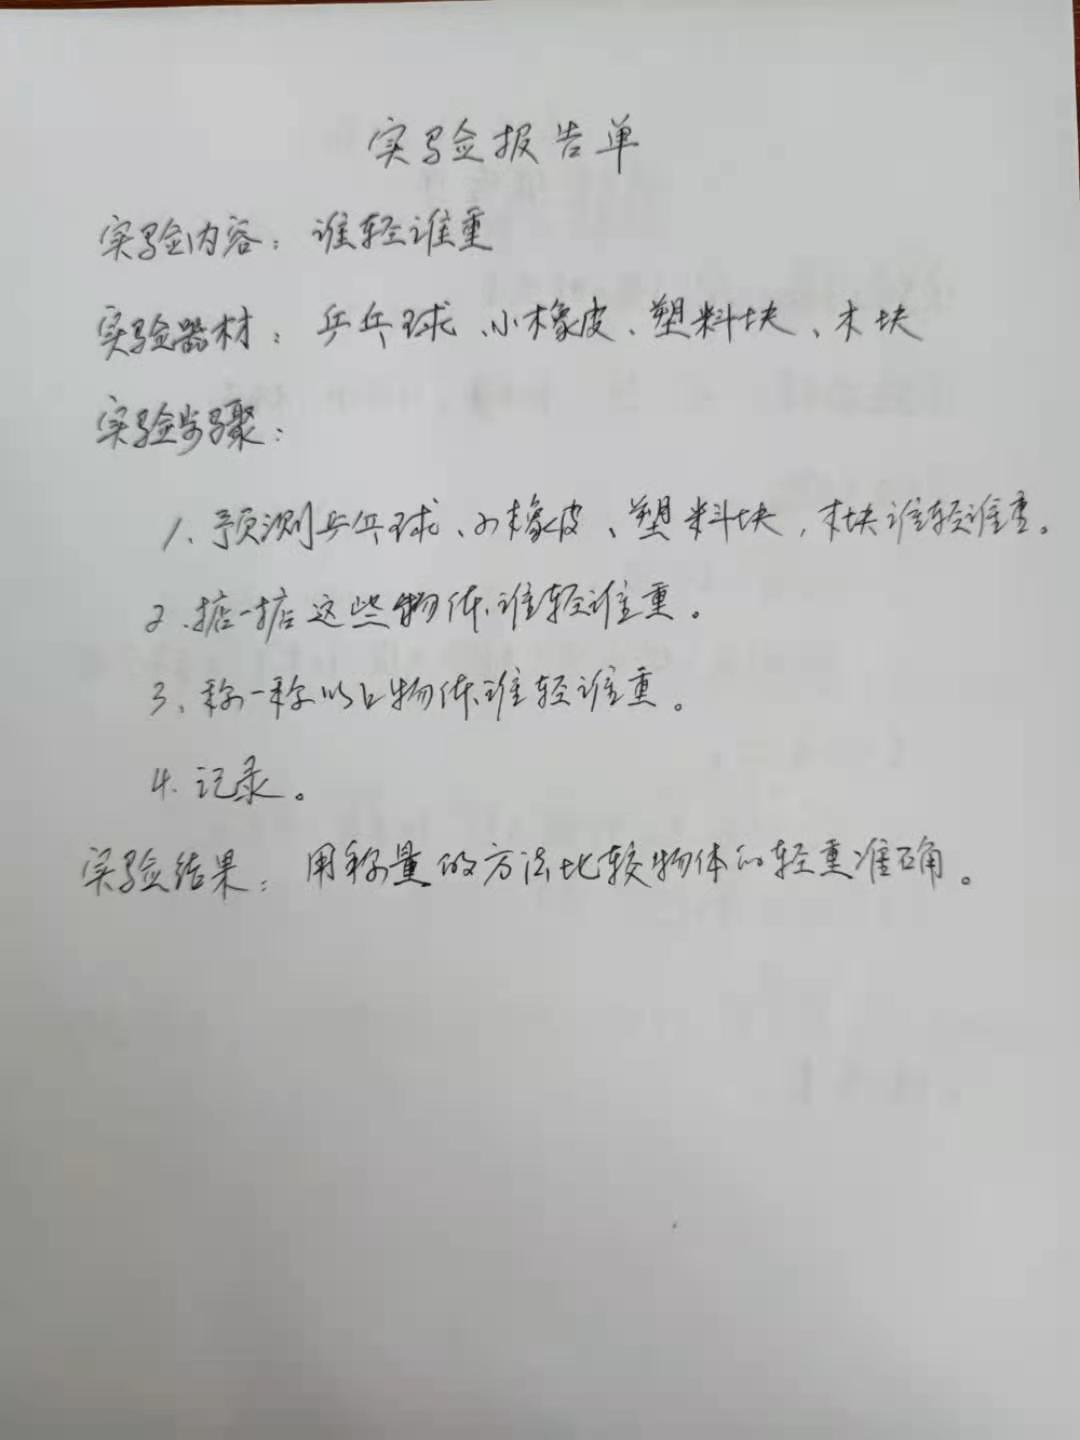 实验报告单
实验内容：谁轻谁重
实验器材：乒乓球、小橡皮、塑料块、木块
实验步骤：
1、预测乒乓球、小橡皮、塑料块，木块谁轻谁重。
2、掂一掂这些物体谁轻谁重。
3、称一称以上物体谁轻谁重。
4、记录。
实验结果：用称量的方法比较物体的轻重准确。